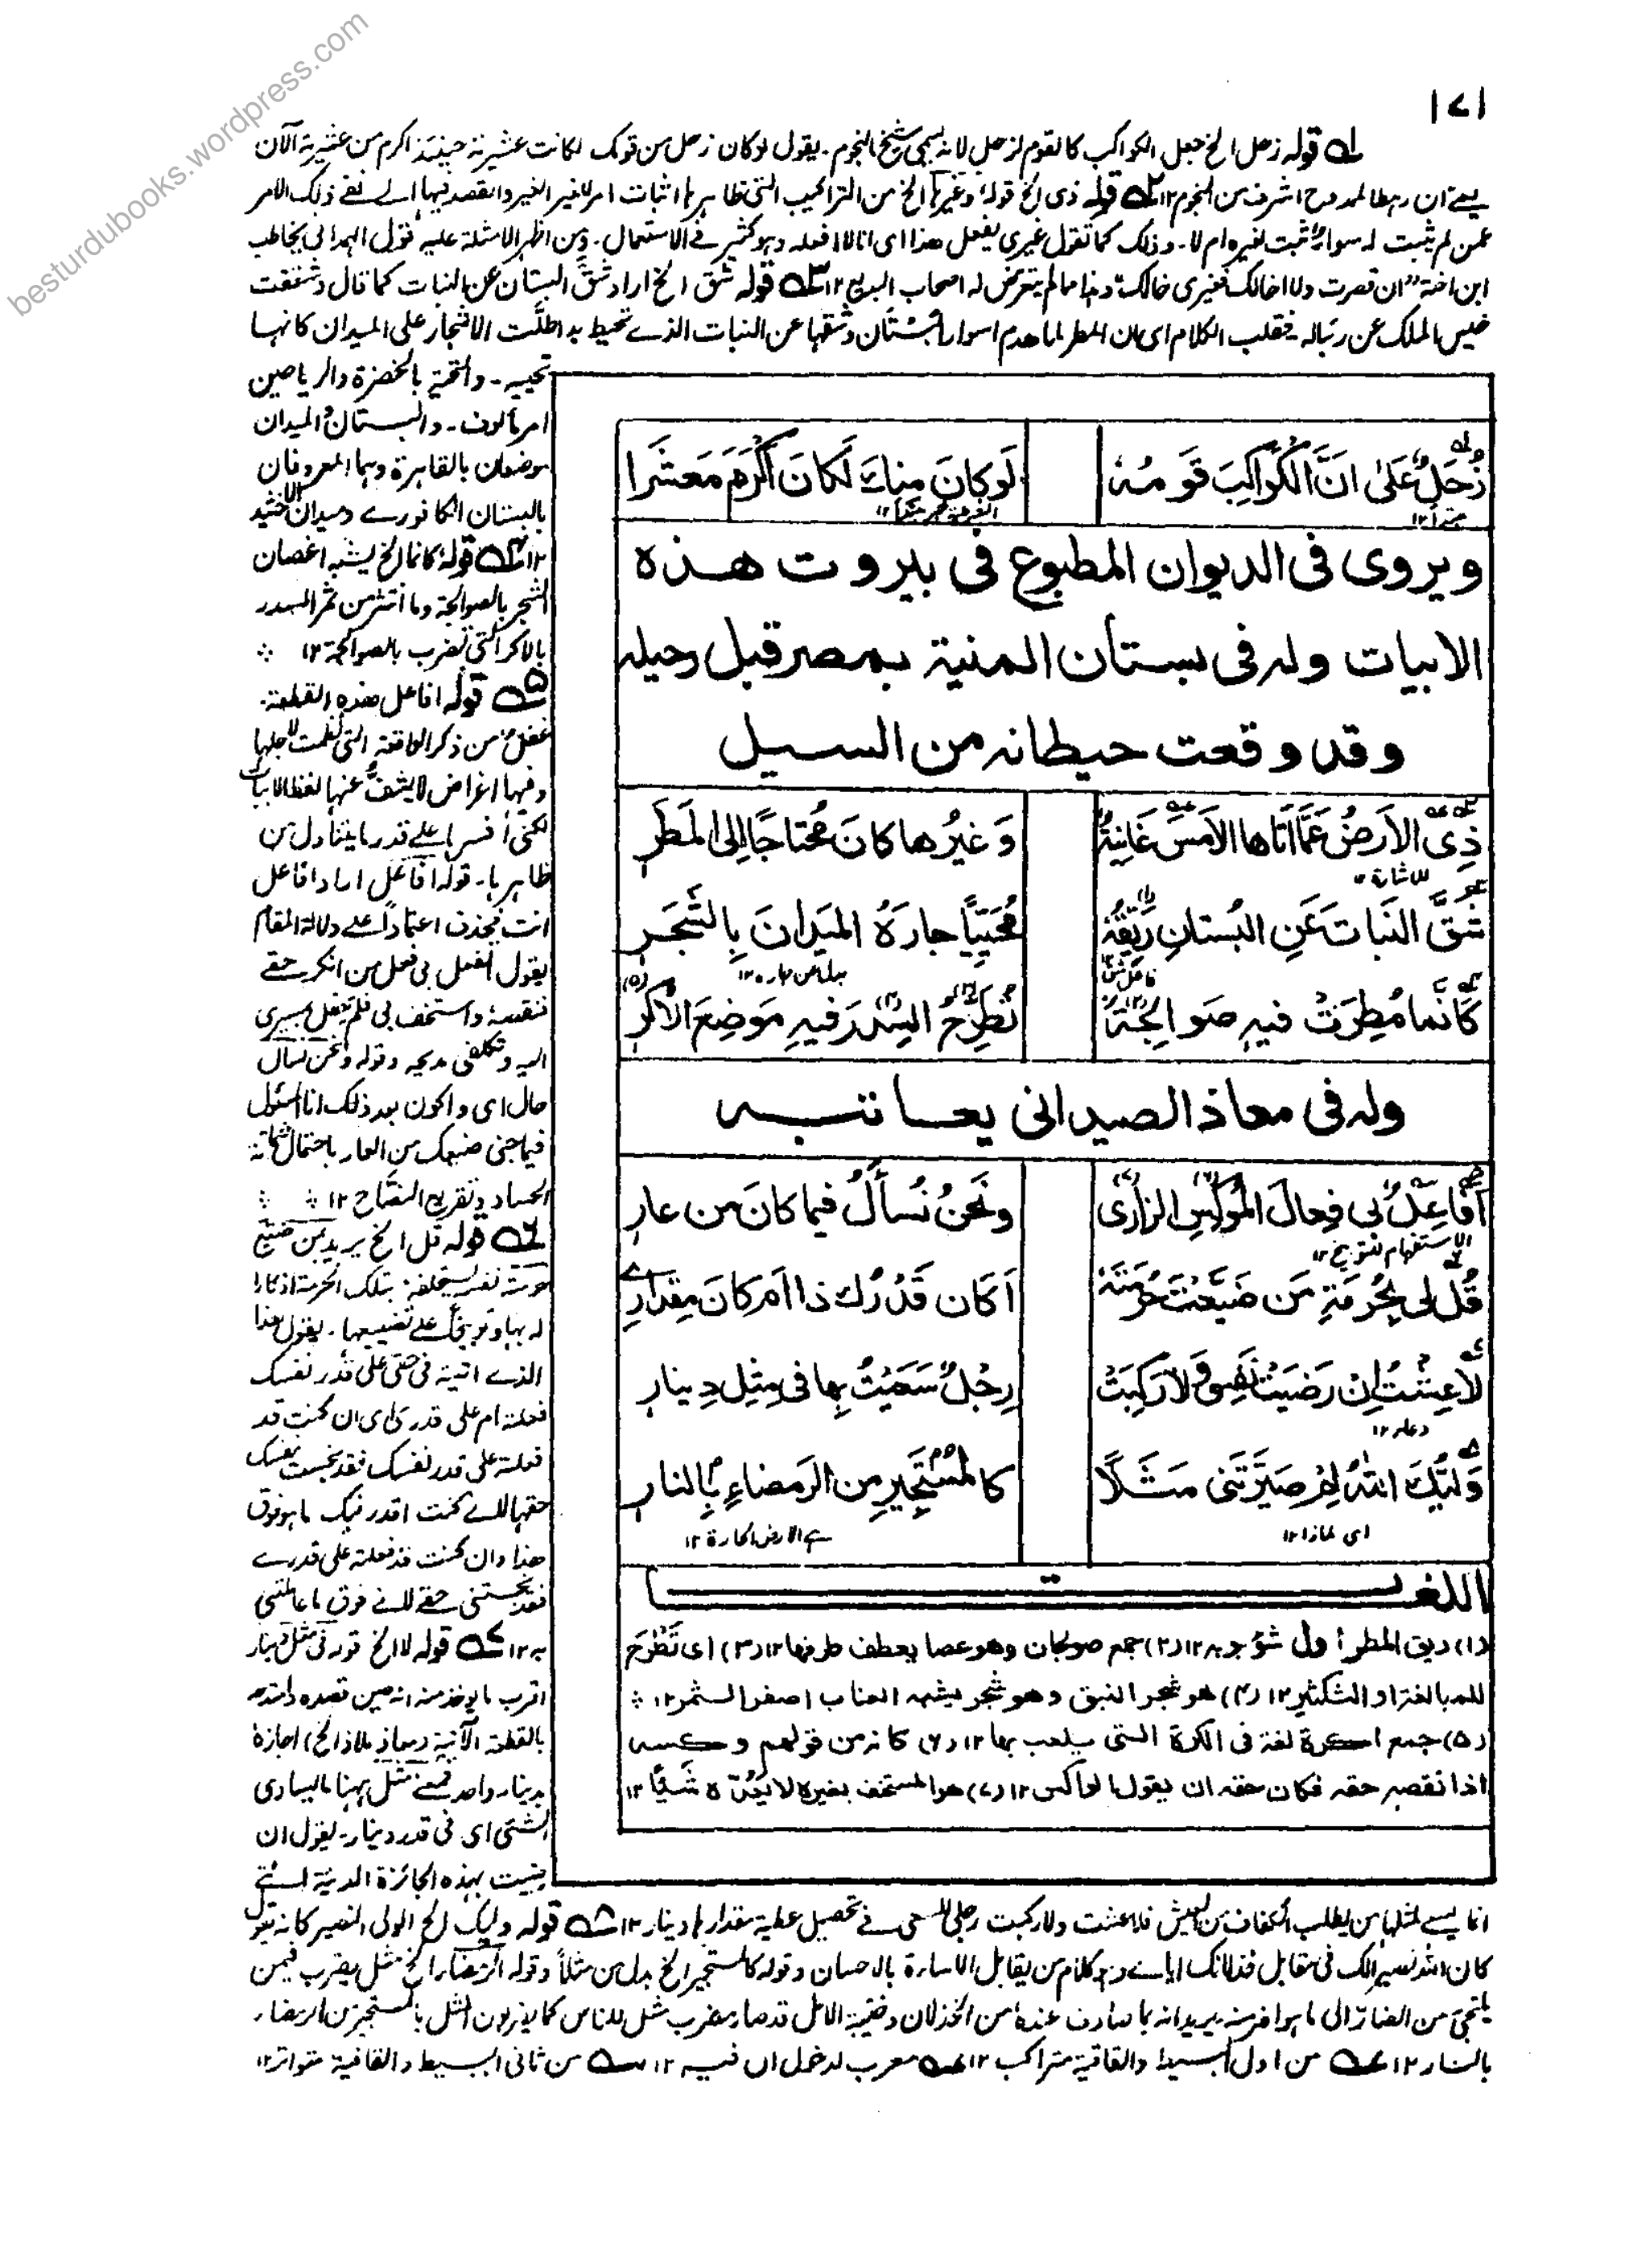 besturdubooks.wordpress.com
۱۷۱
۱ قوله زحل الخ جعل الكواكب كالقوم لزحل لانه يسمى شيخ النجوم ـ يقول لو كان زحل من قومك لكانت عشيرته حينئذ اكرم من عشيرته الآن
يعنے ان رهط الممدوح اشرف من النجوم ۱۲ ۲ قوله ذى الخ قوله وغيرها الخ من التراكيب التى ظاهرها اثبات امر لغير الغير والقصد فيها الے نفے ذلك الامر
عمن لم يثبت له سواء ثبت لغيره ام لا ـ وذلك كما تقول غيرى يفعل هذا اى انا لا افعله وهو كثير فے الاستعمال ـ ومن اظهر الامثلة عليه قول الهمدانى يخاطب
ابن اخته "ان قصرت ولا اخالك فغيرى خالك" وهذا مما لم يتعرض له اصحاب البديع ۱۲ ۳ قوله شق الخ اراد شق البستان عن النبات كما قال وشققت
خيس الملك عن رئباله ـ فقلب الكلام اى ان المطر لما هدم اسوار البستان وشقها عن النبات الذے تحيط به اطلّت الاشجار على الميدان كانها
تحييه ـ والتحية بالخضرة والرياحين
امر مالوف ـ والبستان والميدان
موضعان بالقاهرة وهما المعروفان
بالبستان الكافورے وميدان الاخشيد
۱۲ ۴ قوله كانما الخ يشبه اغصان
الشجر بالصوالجة وما انتثر من ثمر السدر
بالاكر التى تضرب بالصوالجة ۱۲
۵ قوله افاعل هذه القطعة
غفل من ذكر الواقعة التى نظمت لاجلها
وفيها اغراض لا يشف عنها لفظ الابيات
لكنى افسرها على قدر ما يتناول من
ظاهرها ـ قوله افاعل اراد افاعل
انت فحذف اعتمادا على دلالة المقام
يقول أتفعل بى فعل من انكر حقے
فنقصه واستخف بى فلم يحفل بمسيرى
اليه وتكلفى مديحه وقوله ونحن نسأل
حال اى واكون بعد ذلك انا المسئول
فيما جنى صنيعك من العار باحتمال شماتة
الحساد وتقريع النصاح ۱۲
۶ قوله قل الخ يريد بمن ضيعت
حرمته نفسه يستحلفه بتلك الحرمة اذكارا
له بها وتوبيخا على تضييعها ـ يقول هذا
الذے اتيته فى حقى على قدر نفسك
فعلته ام على قدرى اى ان كنت قد
فعلته على قدر نفسك فقد بخست نفسك
حقها لانے كنت اقدر فيك ما هو فوق
هذا وان كنت قد فعلته على قدرے
فقد بخستنى حقے لانے فوق ما عاملتنى
به ۱۲ ۷ قوله لا الخ قوله فى مثل دينار
اقرب ما يؤخذ منه انه حين قصده وامتدحه
بالقطعة الآتية (معاذ ملاذ الخ) اجازه
بدينار واحد فمعنے مثل ههنا ما يساوى
الشئ اى فى قدر دينار ـ يقول ان
رضيت بهذه الجائزة الدنية التے
انما يسعے لمثلها من يطلب الكفاف من العيش فلا عشت ولا ركبت رجلى للسعى فے تحصيل عطية مقدارها دينار ۱۲ ۸ قوله وليك الخ الولى النصير كانه يقول
كان الله نصيرا لك فى مقابل خذلانك اياے وهو كلام من يقابل الاساءة بالاحسان وقوله كالمستجير الخ بدل من مثلا وقوله الرمضاء الخ مثل يضرب فيمن
يلتجئ من الضار الى ما هو اضر منه يريد انه بما صادف عنده من الخذلان وخيبة الامل قد صار مضرب مثل للناس كما يضربون المثل بالمستجير من الرمضاء
بالنار ۱۲ من اول البسيط والقافية متراكب ۱۲ معرب لدخول ان فيه ۱۲ من ثانى البسيط والقافية متواتر ۱۲
زُحَلٌ عَلىٰ اَنَّ الكَواكِبَ قَومُهٗ لَو كانَ مِنكَ لَكانَ اَكرَمَ مَعشَرا
مبتدأ ۱۲
ويروى فى الديوان المطبوع فى بيروت هذه
الابيات وله فى بستان المنية بمصر قبل رحيله
وقد وقعت حيطانه من السيل
ذِى الاَرضُ عَمّا اَتاها الاَمسِ غَانِيَةٌ وَغيرُها كانَ مُحتاجًا اِلى المَطَرِ
للاشارة ۱۲
شَقَّ النَباتَ عَنِ البُستانِ رَيِّقُهٗ (۱) مُحَيِّيًا جارَهُ المَيدانَ بِالشَّجَرِ
فاعل شق بدل من جاره ۱۲
كَاَنَّما مُطِرَتْ فيهِ صَوالِجَةٌ (۲) تُطَرِّحُ (۳) السِدرَ (۴) فيهِ مَوضِعَ الاُكَرِ (۵)
وله فى معاذ الصيدانى يعاتبه
اَفاعِلٌ بى فِعالَ المُوكِسِ (۶) الزارى (۷) ونَحنُ نُسأَلُ فيما كانَ من عارِ
الاستفهام للتوبيخ ۱۲
قُل لى بِحُرمَةِ مَن ضَيَّعتَ حُرمَتَهٗ اَكانَ قَدرُكَ ذا اَم كانَ مِقدارِى
لاعِشتُ اِنْ رَضِيَتْ نَفسى وَلا رَكِبَتْ رِجلٌ سَعَيتُ بِها فى مِثلِ دِينارِ
دعاء ۱۲
وَلِيُّكَ اللهُ لِمْ صَيَّرتَنى مَثَلًا كالمُستَجيرِ مِن الرَمضاءِ بِالنارِ
اى لماذا ۱۲ هے الارض الحارة ۱۲
اللغت
(۱) ريق المطر أول شؤبوبه ۱۲ (۲) جمع صولجان وهو عصا يعطف طرفها ۱۲ (۳) اى تَطْرَح
للمبالغة او التكثير ۱۲ (۴) هو شجر النبق وهو شجر يشبه العناب اصفر الثمر ۱۲
(۵) جمع اكرة لغة فى الكرة التى يلعب بها ۱۲ (۶) كانه من قولهم وكسه
اذا نقصه حقه فكان حقه ان يقول الواكس ۱۲ (۷) هو المستخف بغيره لا يعده شيئًا ۱۲